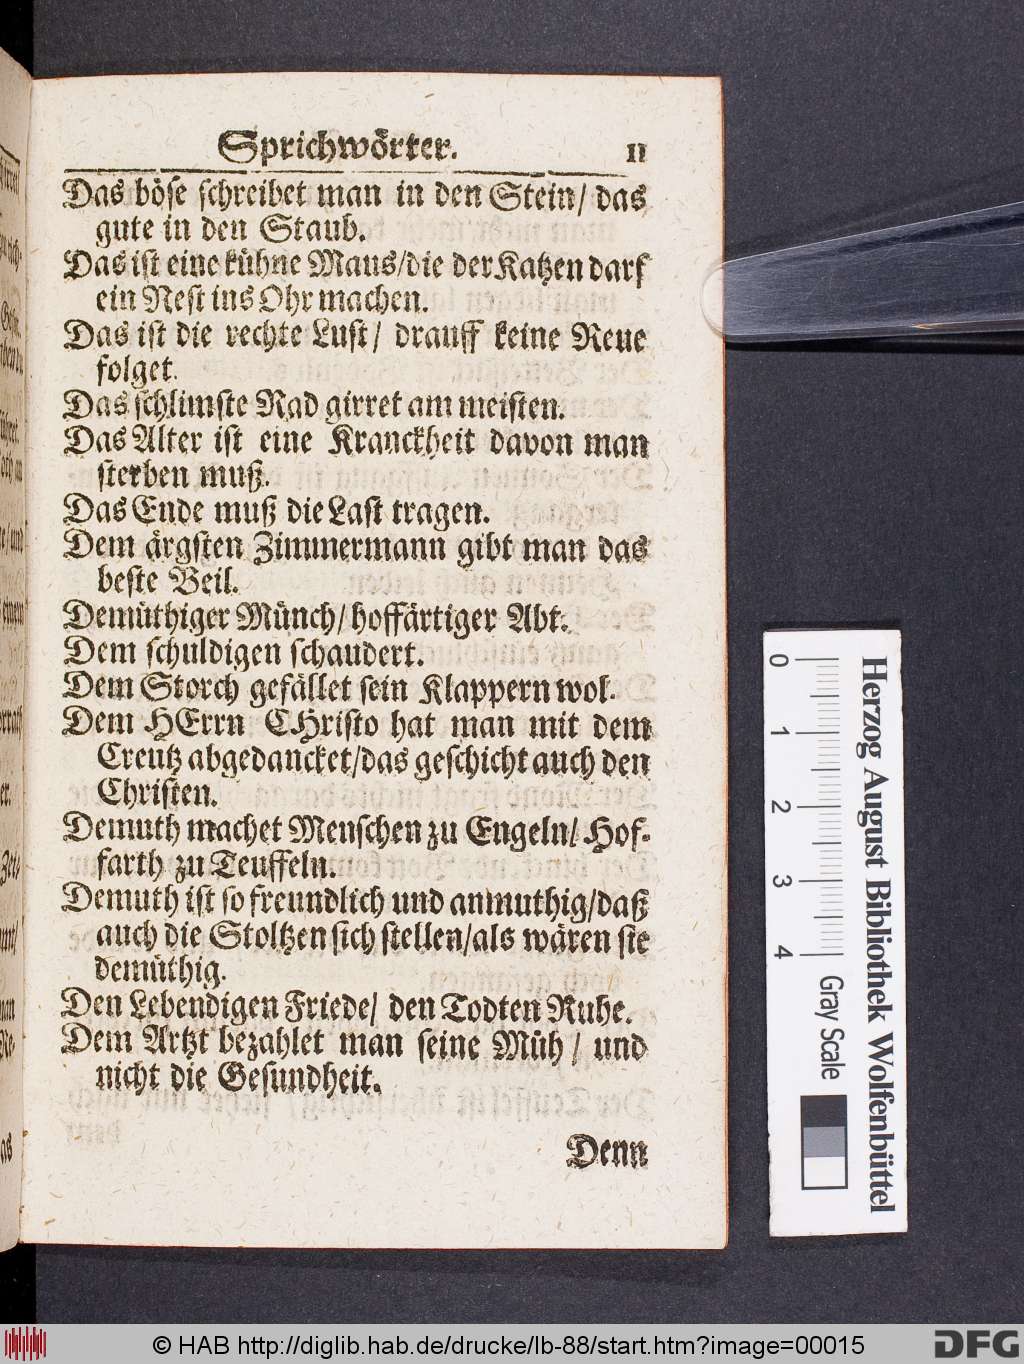 Sprichwörter. 11
Das böse schreibet man in den Stein/ das
gute in den Staub.
Das ist eine kühne Maus/die der Katzen darf
ein Nest ins Ohr machen.
Das ist die rechte Lust/ drauff keine Reue
folget.
Das schlimste Rad girret am meisten.
Das Alter ist eine Kranckheit davon man
sterben muß.
Das Ende muß die Last tragen.
Dem ärgsten Zimmermann gibt man das
beste Beil.
Demüthiger Münch/ hoffärtiger Abt.
Dem schuldigen schaudert.
Dem Storch gefället sein Klappern wol.
Dem HErrn CHristo hat man mit dem
Creutz abgedancket/das geschicht auch den
Christen.
Demuth machet Menschen zu Engeln/ Hof-
farth zu Teuffeln.
Demuth ist so freundlich und anmuthig/daß
auch die Stoltzen sich stellen/als wären sie
demüthig.
Den Lebendigen Friede/ den Todten Ruhe.
Dem Artzt bezahlet man seine Müh / und
nicht die Gesundheit.
Denn
0 1 2 3 4 Gray Scale
Herzog August Bibliothek Wolfenbüttel
© HAB http://diglib.hab.de/drucke/lb-88/start.htm?image=00015
DFG